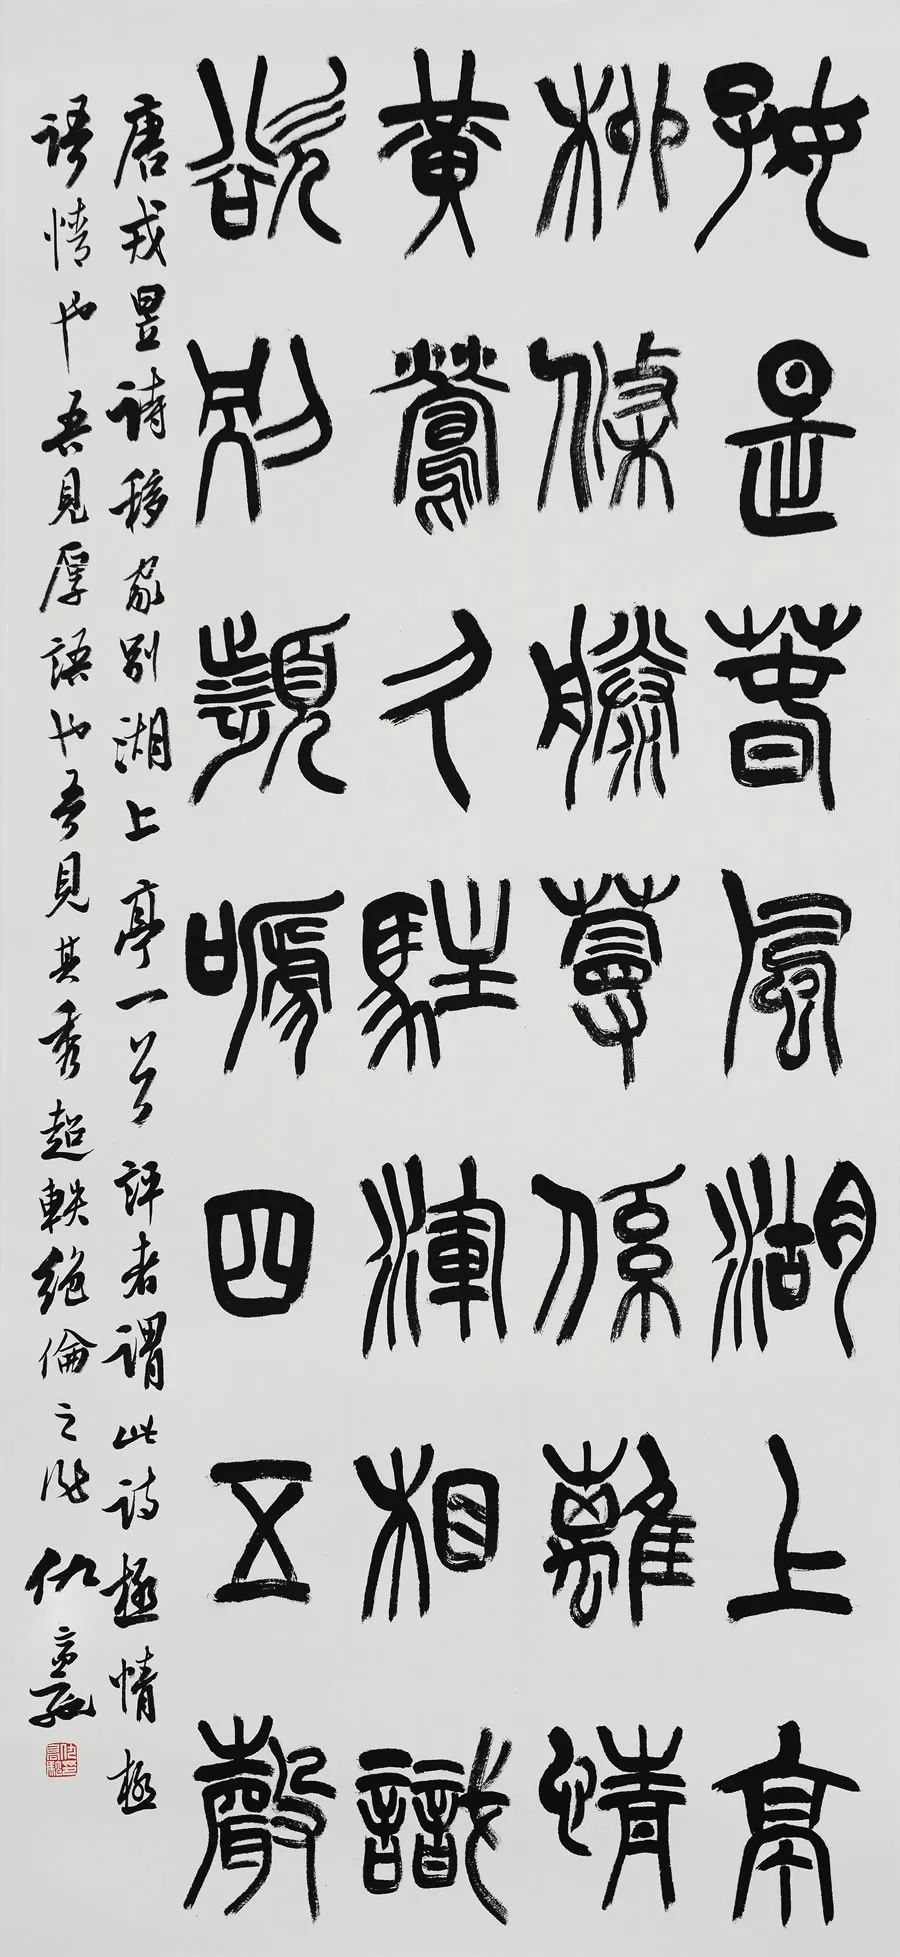 好是春風湖上亭
柳條滕蔓係離情
黃鶯久駐渾相識
欲別頻嗁四五聲
唐戎昱詩移家別湖上亭一首評者謂此詩極情極
語情也吾見厚語也吾見其秀超軼絕倫之作仇高馳